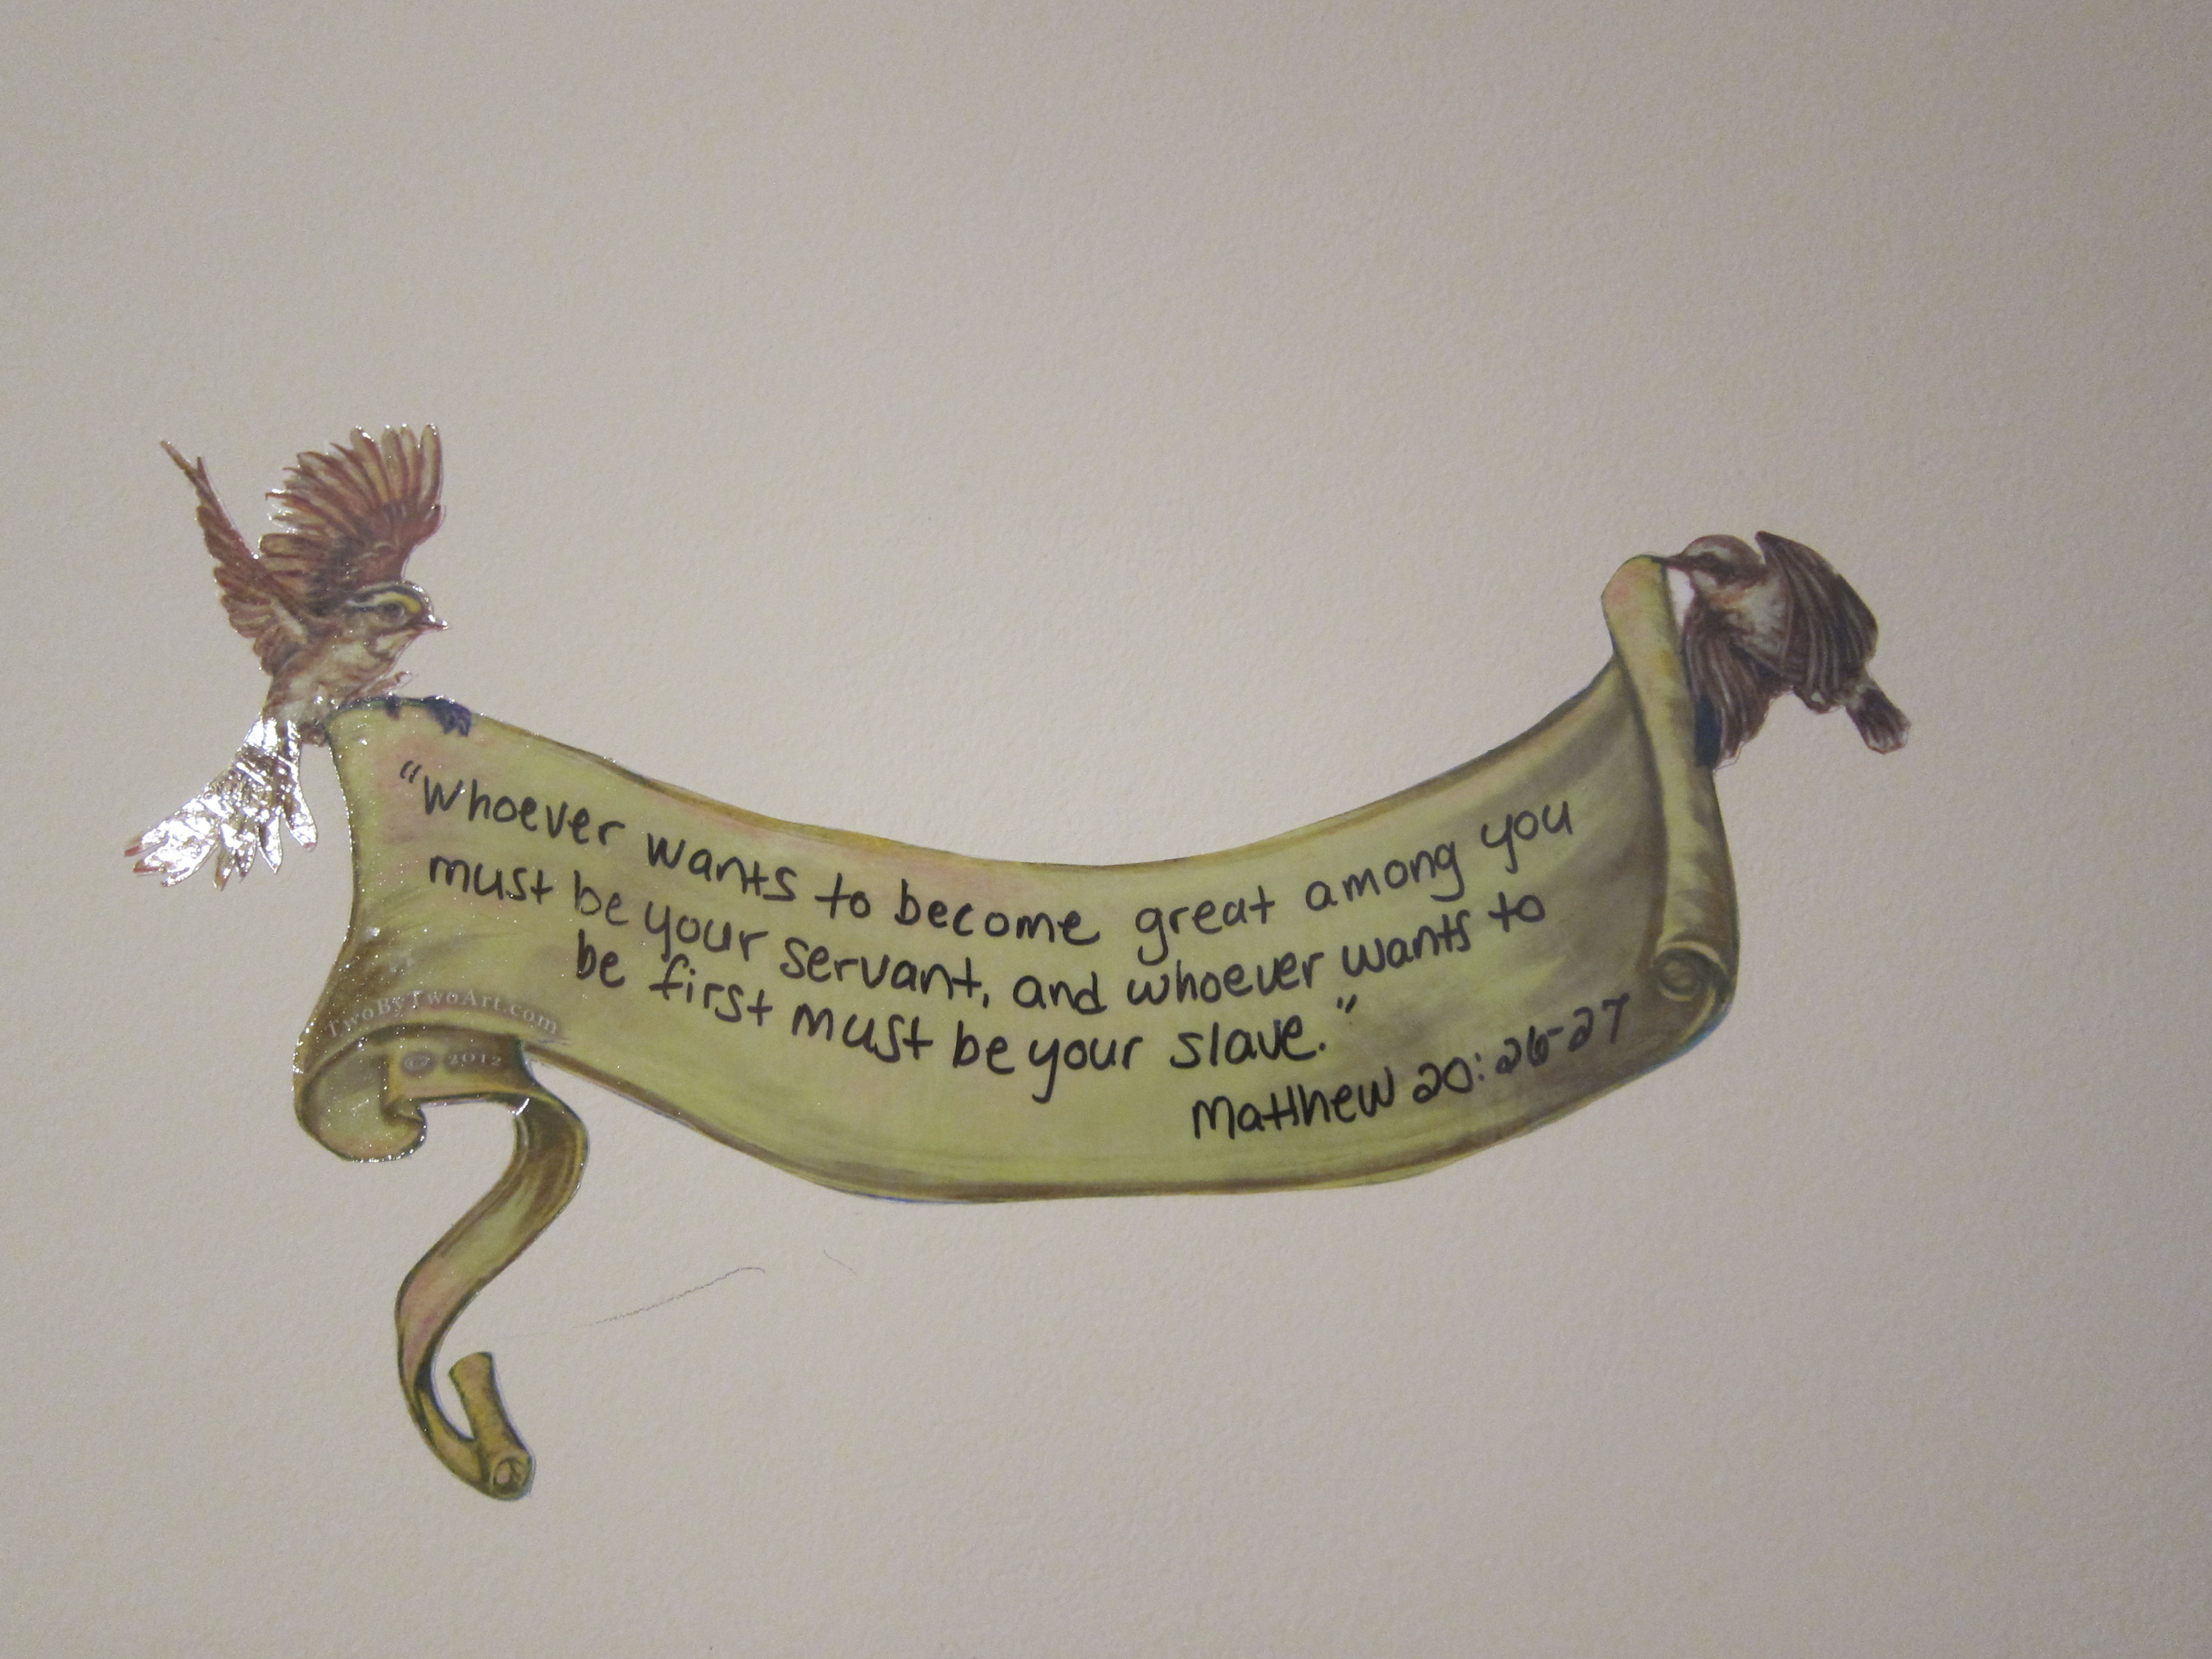 "Whoever wants to become great among you
must be your servant, and whoever wants to
be first must be your slave."
Matthew 20:26-27
TwoByTwoArt.com
© 2012